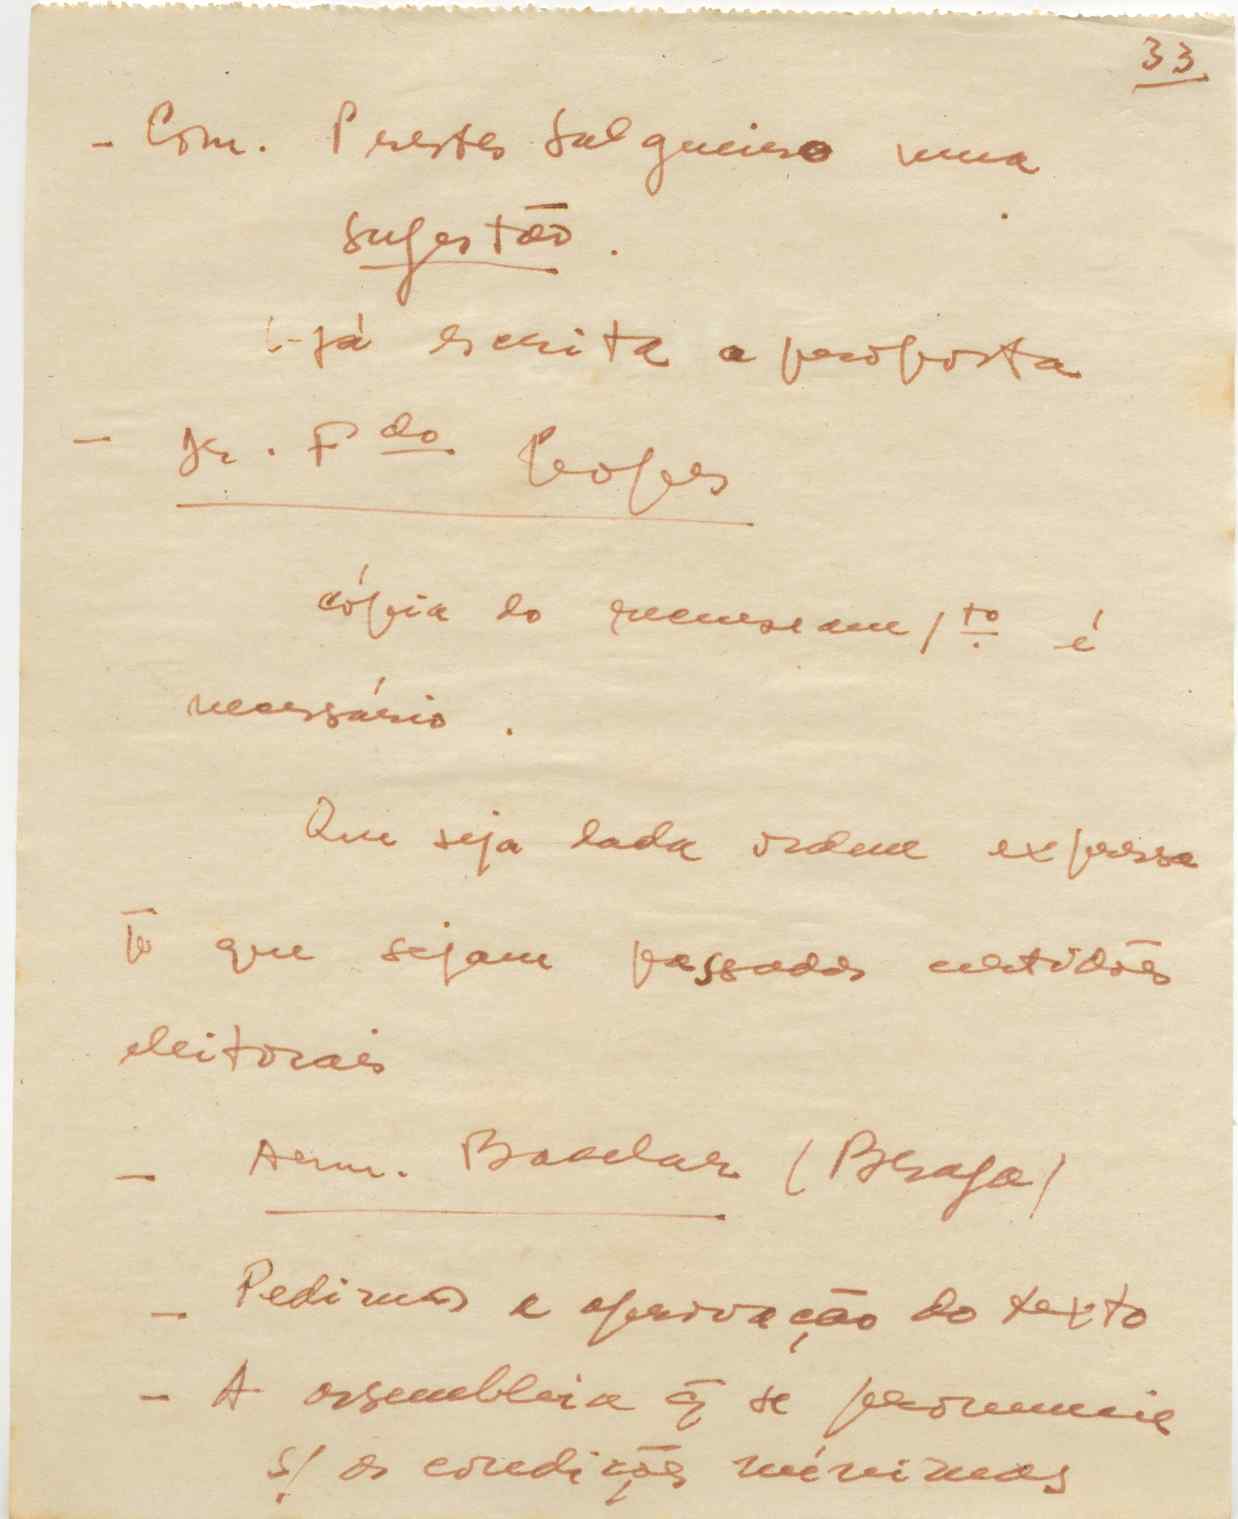 33
- Com. Prestes Salgueiro uma
sugestão.
já escrita a proposta
- Dr. F do Lopes
cópia do recenseam/to é
necessário.
Que seja dada ordem expressa
p que sejam passadas certidões
eleitorais
- Arm. Bacelar (Braga)
- Pedimos a aprovação do texto
- A assembleia q̄ se pronuncie
s/ as condições mínimas